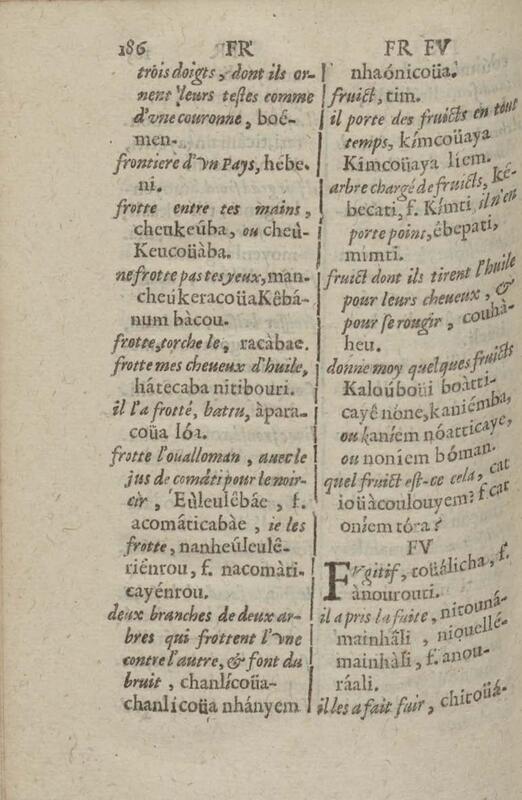 186 FR FR FV
trois doigts, dont ils or-
nent leurs testes comme
d'vne couronne, boé-
men.
frontiere d'vn Pays, hébe.
ni.
frotte entre tes mains,
cheukeúba, ou cheù-
Keucoüàba.
ne frotte pas tes yeux, man-
cheúkeracoüaKêbá-
num bàcou.
frotte, torche le, racàbae.
frotte mes cheueux d'huile,
hátecaba nitibouri.
il l'a frotté, battu, àpara-
coüa lóa.
frotte l'oualloman, auec le
jus de comáti pour le noir-
cir, Eùleulêbáe, f.
acomáticabàe, ie les
frotte, nanheúleulê-
riênrou, f. nacomàti-
cayénrou.
deux branches de deux ar-
bres qui frottent l'vne
contre l'autre, & font du
bruit, chanlícoüa-
chanlicoüa nhányem
nhaónicoüa.
fruict, tim.
il porte des fruicts en tout
temps, kímcoüaya
Kimcoüaya liem.
arbre chargé de fruicts, ké-
becati, f. Kímti, il n'en
porte point, êbepati,
mimti.
fruict dont ils tirent l'huile
pour leurs cheueux, &
pour se rougir, couhà-
heu.
donne moy quelques fruicts
Kaloúboüi boàtti-
cayê nóne, kaniémba,
ou kaníem nóatticaye,
ou noníem bóman.
quel fruict est-ce cela, cat
ioüàcoulouyem? f. cat
oníem tóra?
FV
Fvgitif, toüálicha, f.
ànourouti.
il a pris la fuite, nitouná-
mainhãli, niquellé-
mainhàli, f. anou-
ráali.
il les a fait fuir, chitoüá-